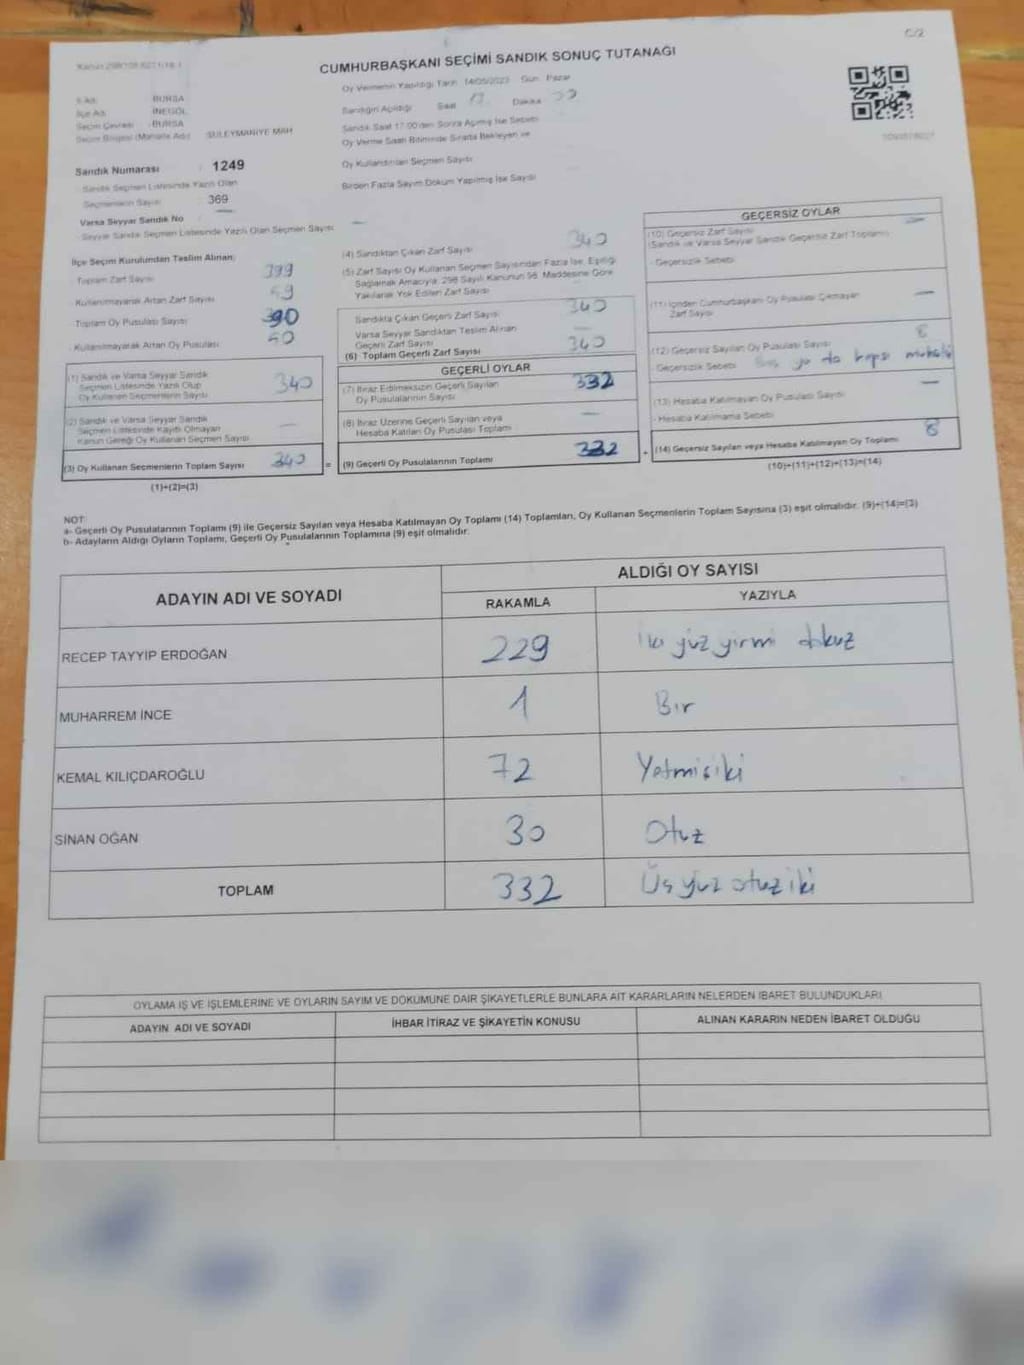 C/2
CUMHURBAŞKANI SEÇİMİ SANDIK SONUÇ TUTANAĞI
Oy Vermenin Yapıldığı Tarih 14/05/2023 Gün Pazar
Sandığın Açıldığı Saat 17 Dakika
Sandık Saat 17.00'den Sonra Açılmış İse Sebebi
Oy Verme Saati Bitiminde Sırada Bekleyen ve
Oy Kullandırılan Seçmen Sayısı
Birden Fazla Sayım Döküm Yapılmış İse Sayısı
İl Adı BURSA
İlçe Adı İNEGÖL
Seçim Çevresi BURSA
Seçim Bölgesi (Mahalle Adı) SÜLEYMANİYE MAH
Sandık Numarası : 1249
Sandık Seçmen Listesinde Yazılı Olan
Seçmenlerin Sayısı : 369
Varsa Seyyar Sandık No
- Seyyar Sandık Seçmen Listesinde Yazılı Olan Seçmen Sayısı —
İlçe Seçim Kurulundan Teslim Alınan;
Toplam Zarf Sayısı 399
- Kullanılmayarak Artan Zarf Sayısı 59
Toplam Oy Pusulası Sayısı 390
- Kullanılmayarak Artan Oy Pusulası 50
(1) Sandık ve Varsa Seyyar Sandık
Seçmen Listesinde Yazılı Olup
Oy Kullanan Seçmenlerin Sayısı 340
(2) Sandık ve Varsa Seyyar Sandık
Seçmen Listesinde Kayıtlı Olmayan
Kanun Gereği Oy Kullanan Seçmen Sayısı —
(3) Oy Kullanan Seçmenlerin Toplam Sayısı 340
(1)+(2)=(3)
(4) Sandıktan Çıkan Zarf Sayısı 340
(5) Zarf Sayısı Oy Kullanan Seçmen Sayısından Fazla İse, Eşitliği
Sağlamak Amacıyla; 298 Sayılı Kanunun 98. Maddesine Göre
Yakılarak Yok Edilen Zarf Sayısı
Sandıkta Çıkan Geçerli Zarf Sayısı 340
Varsa Seyyar Sandıktan Teslim Alınan
Geçerli Zarf Sayısı —
(6) Toplam Geçerli Zarf Sayısı 340
GEÇERLİ OYLAR
(7) İtiraz Edilmeksizin Geçerli Sayılan
Oy Pusulalarının Sayısı 332
(8) İtiraz Üzerine Geçerli Sayılan veya
Hesaba Katılan Oy Pusulası Toplamı —
= (9) Geçerli Oy Pusulalarının Toplamı 332
GEÇERSİZ OYLAR
(10) Geçersiz Zarf Sayısı —
(Sandık ve Varsa Seyyar Sandık Geçersiz Zarf Toplamı)
- Geçersizlik Sebebi
(11) İçinden Cumhurbaşkanı Oy Pusulası Çıkmayan
Zarf Sayısı —
(12) Geçersiz Sayılan Oy Pusulası Sayısı 8
- Geçersizlik Sebebi Boş ya da hepsi
(13) Hesaba Katılmayan Oy Pusulası Sayısı —
- Hesaba Katılmama Sebebi
+ (14) Geçersiz Sayılan veya Hesaba Katılmayan Oy Toplamı 8
(10)+(11)+(12)+(13)=(14)
NOT:
a- Geçerli Oy Pusulalarının Toplamı (9) ile Geçersiz Sayılan veya Hesaba Katılmayan Oy Toplamı (14) Toplamları, Oy Kullanan Seçmenlerin Toplam Sayısına (3) eşit olmalıdır. (9)+(14)=(3)
b- Adayların Aldığı Oyların Toplamı, Geçerli Oy Pusulalarının Toplamına (9) eşit olmalıdır.
ADAYIN ADI VE SOYADI ALDIĞI OY SAYISI
RAKAMLA YAZIYLA
RECEP TAYYİP ERDOĞAN 229 İki yüz yirmi dokuz
MUHARREM İNCE 1 Bir
KEMAL KILIÇDAROĞLU 72 Yetmişiki
SİNAN OĞAN 30 Otuz
TOPLAM 332 Üç yüz otuz iki
OYLAMA İŞ VE İŞLEMLERİNE VE OYLARIN SAYIM VE DÖKÜMÜNE DAİR ŞİKAYETLERLE BUNLARA AİT KARARLARIN NELERDEN İBARET BULUNDUKLARI
ADAYIN ADI VE SOYADI İHBAR İTİRAZ VE ŞİKAYETİN KONUSU ALINAN KARARIN NEDEN İBARET OLDUĞU